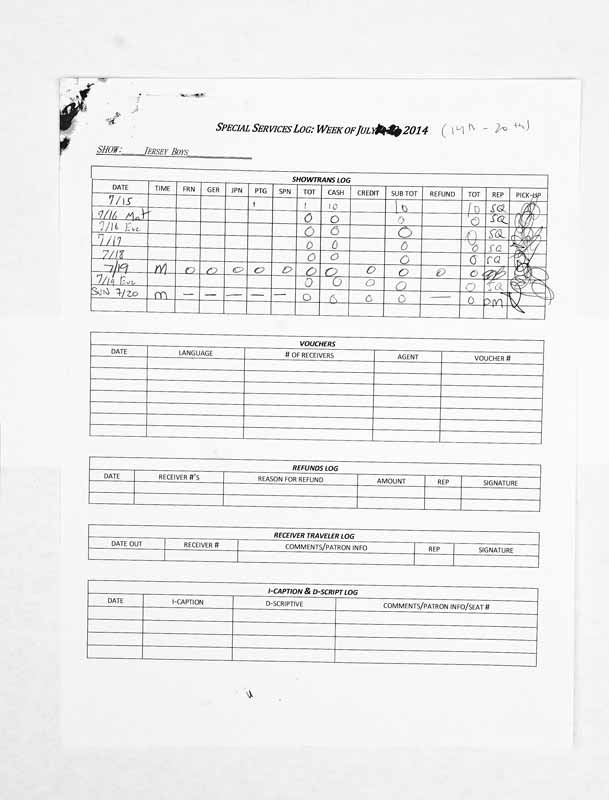 SPECIAL SERVICES LOG: WEEK OF JULY 2014 (14th - 20th)
SHOW: JERSEY BOYS
SHOWTRANS LOG
DATE TIME FRN GER JPN PTG SPN TOT CASH CREDIT SUB TOT REFUND TOT REP PICK-UP
7/15 1 1 10 10 10 SQ
7/16 Mat 0 0 0 0 SQ
7/16 Eve 0 0 0
7/17 0 0 0 0 SQ
7/18 0 0 0 0 SQ
7/19 M 0 0 0 0 0 0 0 0 0 0 0
7/19 Eve 0 0 0 0 0 SQ
SUN 7/20 M — — — — — 0 0 0 0 — 0 PM
VOUCHERS
DATE LANGUAGE # OF RECEIVERS AGENT VOUCHER #
REFUNDS LOG
DATE RECEIVER #'S REASON FOR REFUND AMOUNT REP SIGNATURE
RECEIVER TRAVELER LOG
DATE OUT RECEIVER # COMMENTS/PATRON INFO REP SIGNATURE
I-CAPTION & D-SCRIPT LOG
DATE I-CAPTION D-SCRIPTIVE COMMENTS/PATRON INFO/SEAT #